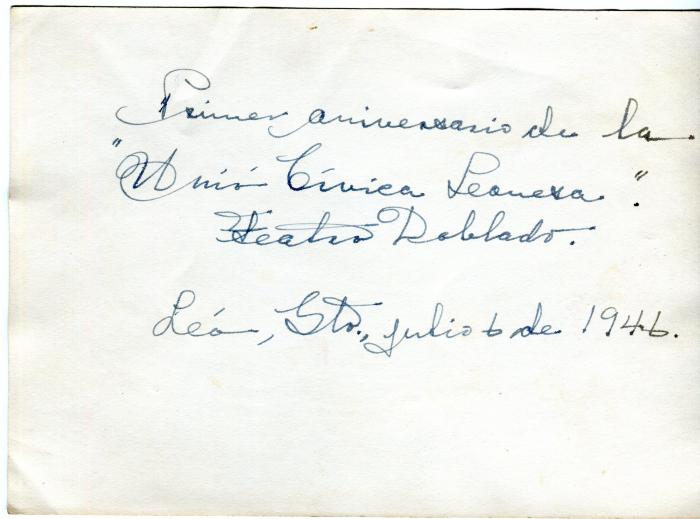 Primer aniversario de la
"Unión Cívica Leonesa".
Teatro Doblado.
León, Gto., julio 6 de 1946.